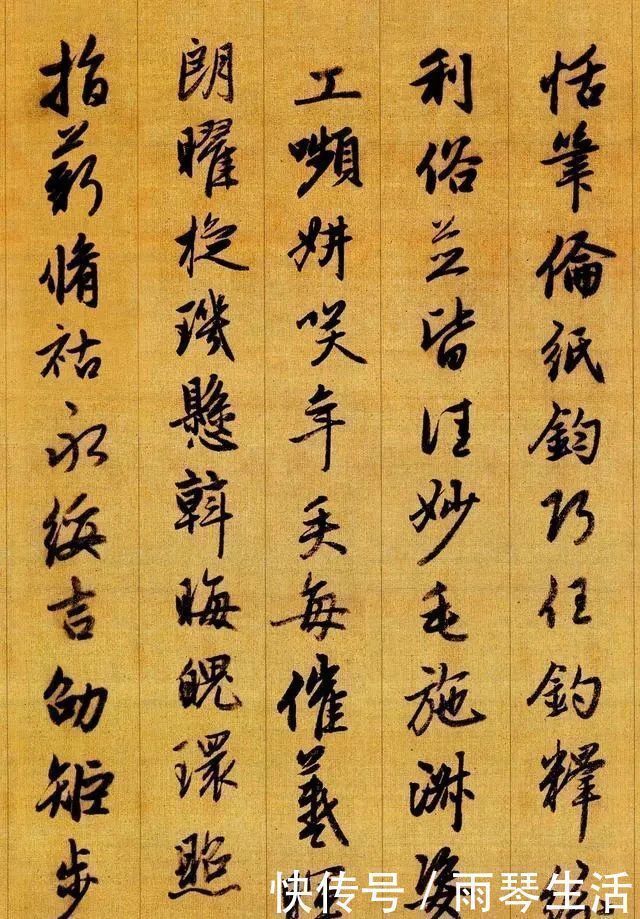 恬筆倫紙鈞巧任釣釋
利俗並皆佳妙毛施淑姿
工嚬妍咲年矢每催羲
朗曜旋璣懸斡晦魄環照
指薪脩祜永綏吉劭矩步
快传号 / 雨琴生活